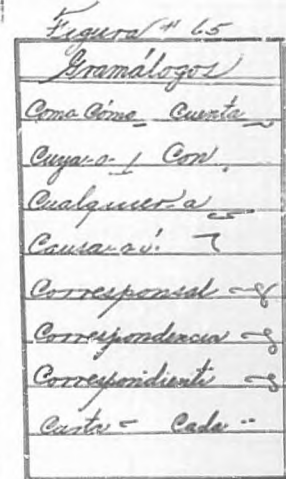 Figura # 65
Gramálogos
Como Cómo Cuenta
Cuya-o- Con
Cualquier-a
Causa-a-ó!
Corresponsal
Correspondencia
Correspondiente
Carta Cada